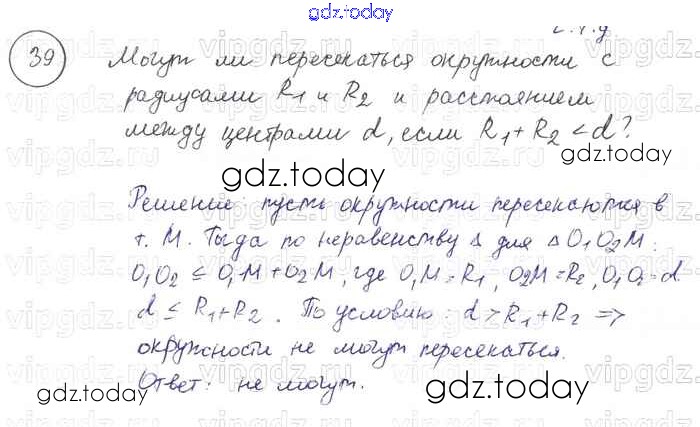 gdz.today
ч.т.д
39 Могут ли пересекаться окружности с
радиусами R1 и R2 и расстоянием
между центрами d, если R1 + R2 < d?
gdz.today
Решение: пусть окружности пересекаются в
т. М. Тогда по неравенству Δ для Δ O1O2M:
O1O2 ≤ O1M + O2M, где O1M = R1, O2M = R2, O1O2 = d
d ≤ R1 + R2. По условию: d > R1 + R2 =>
окружности не могут пересекаться.
Ответ: не могут.
gdz.today
gdz.today